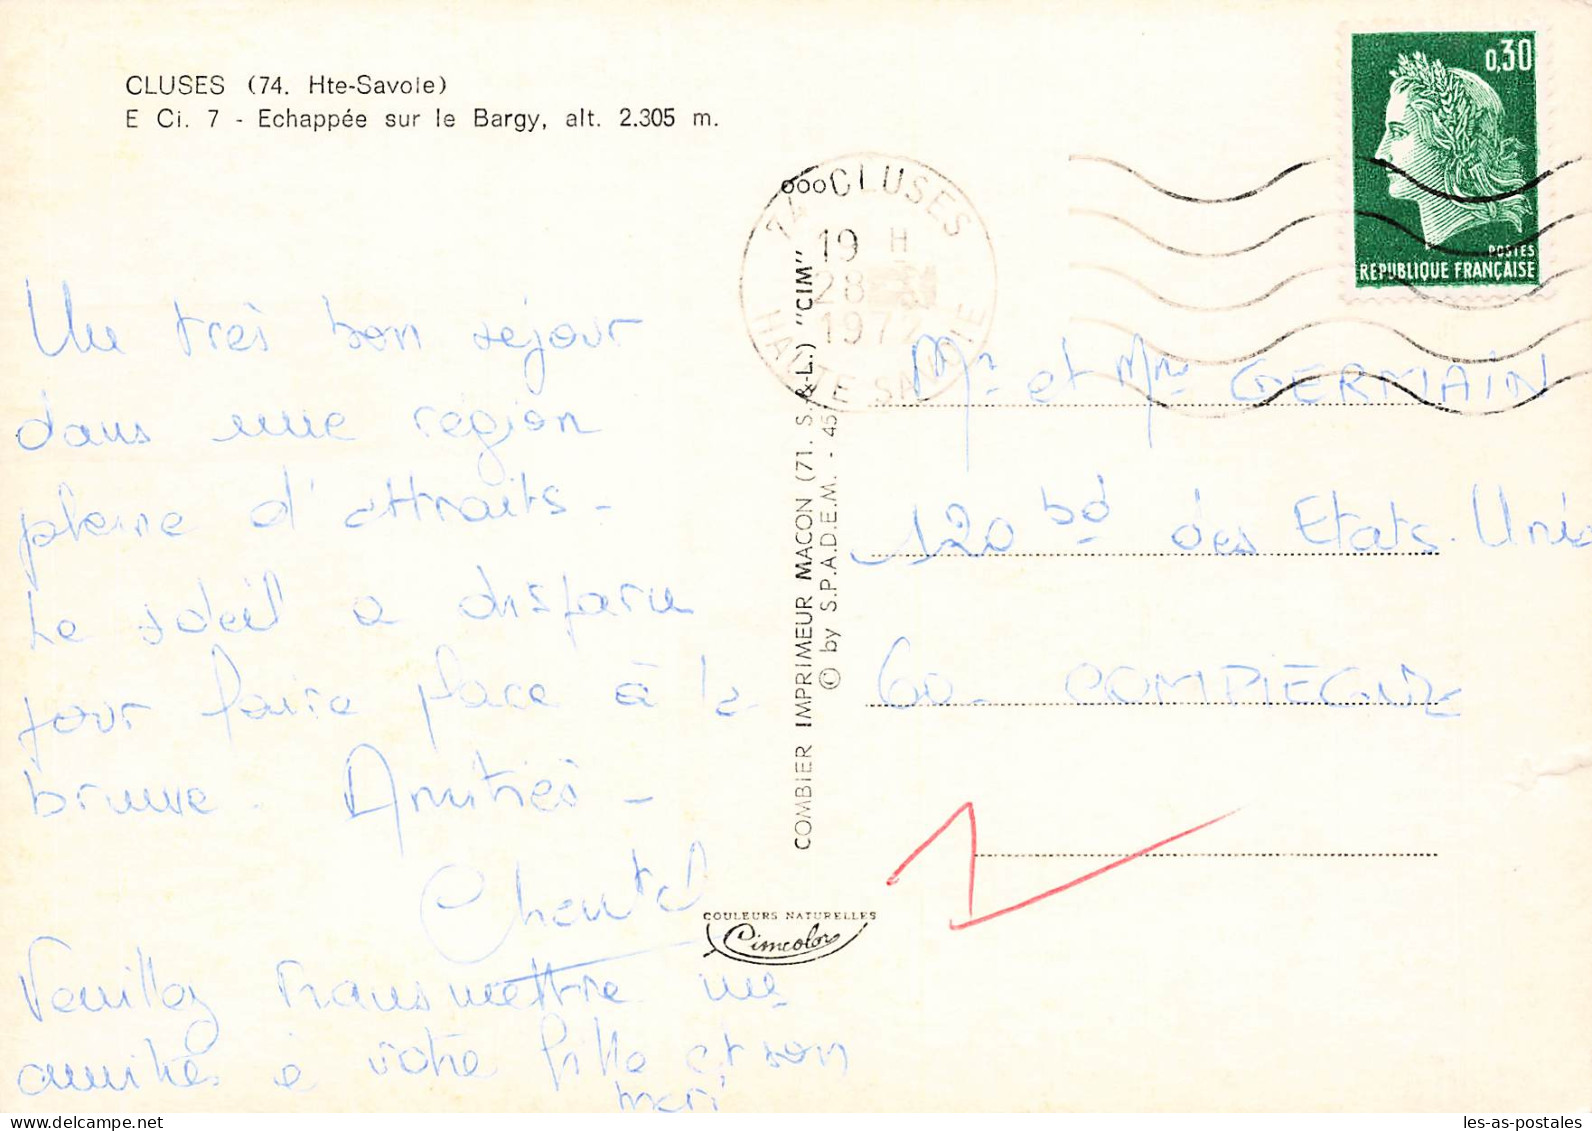 CLUSES (74. Hte-Savoie)
E Ci. 7 - Echappée sur le Bargy, alt. 2.305 m.
Un très bon séjour
dans une région
pleine d'attraits -
Le soleil a disparu
pour faire place à la
brume. Amitiés -
Chantal
Veuillez transmettre
amitiés à votre fille et son
mari
COMBIER IMPRIMEUR MACON (71. S.-&-L.) "CIM"
© by S.P.A.D.E.M. - 45
COULEURS NATURELLES
Cimcolor
74 CLUSES
19 H
28
1972
HAUTE SAVOIE
0,30
POSTES
REPUBLIQUE FRANÇAISE
Mr et Mme GERMAIN
120 bd des Etats-Unis
60 - COMPIEGNE
les-as-postales